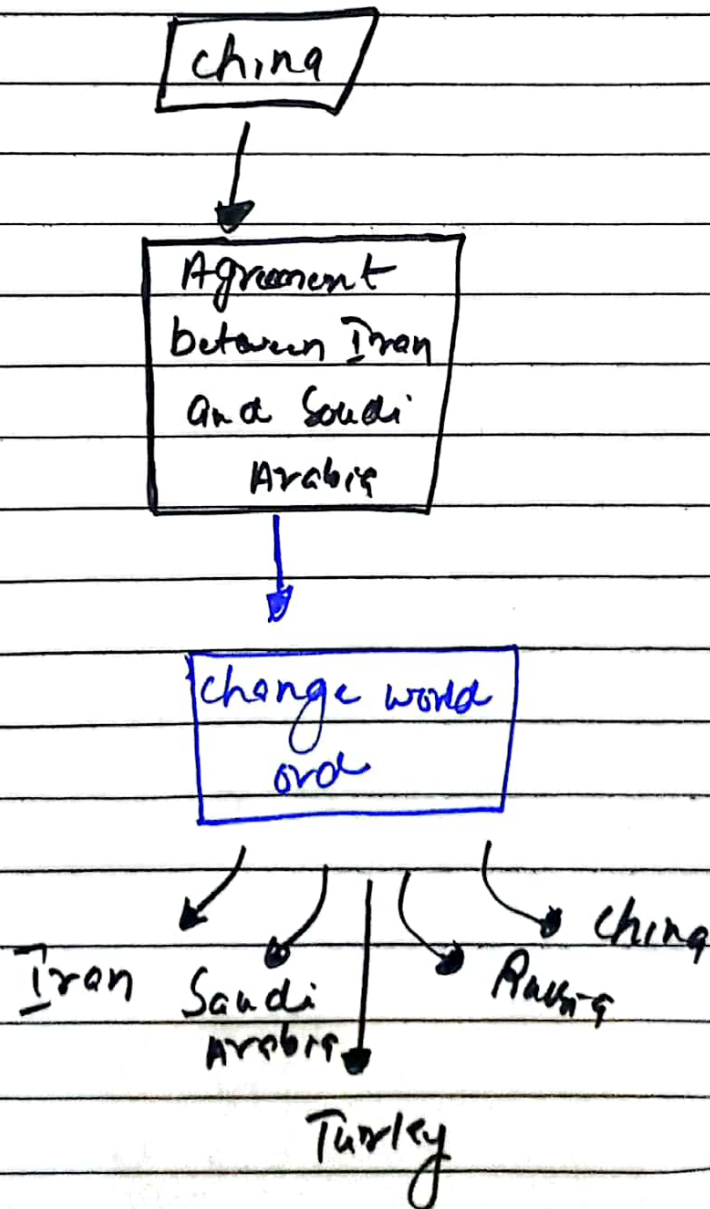 China
Agreement
between Iran
and Soudi
Arabia
change world
ord
Iran
Saudi
Arabia
Turkey
Russia
China